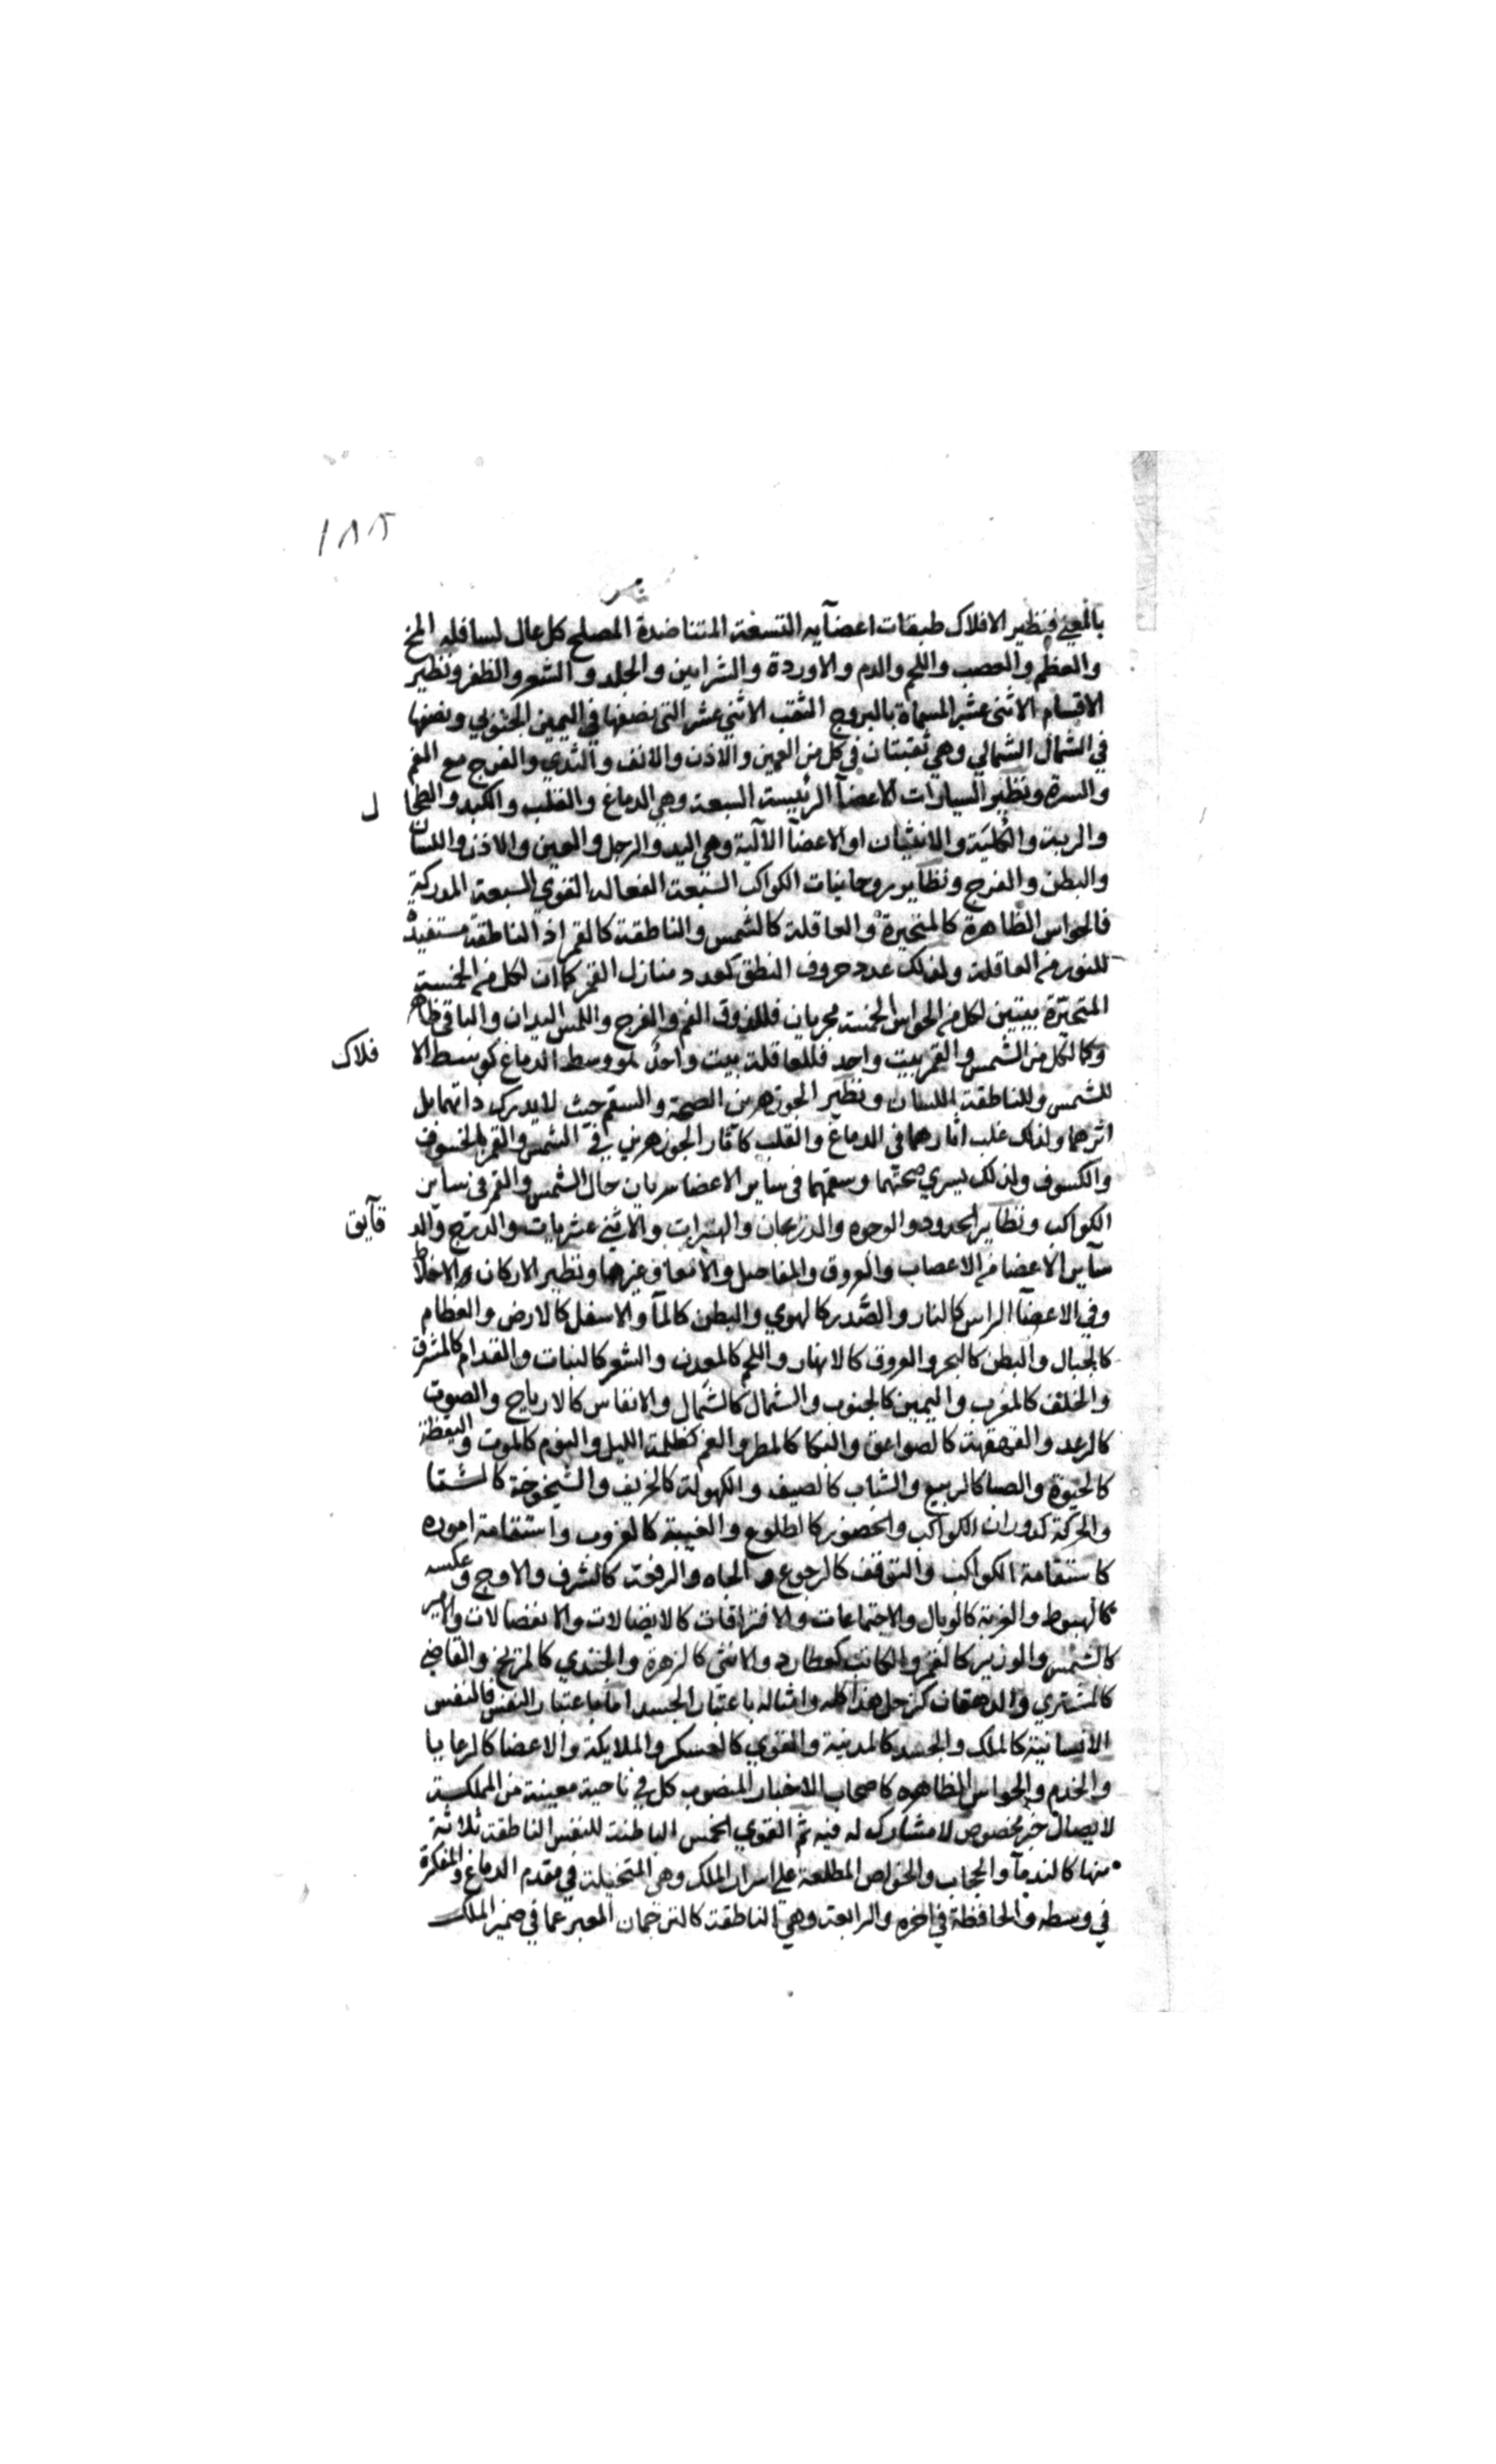 ١٨٢
بالمعنى فنظير الافلاك طبقات اعضآيه التسعة المتناضدة المصلح كل عال لسافله المخ
والعظم والعصب واللحم والدم والاوردة والشرايين والجلد والشعر والظفر ونظير
الاقسام الاثنى عشر المسماة بالبروج الثقب الاثني عشر التي نصفها في اليمين الجنوبي ونصفها
في الشمال الشمالي وهي ثقبتان في كل من العين والاذن والانف والثدي والفرج مع الفم
والسرة ونظير السيارات الاعضآ الرئيسة السبعة وهي الدماغ والقلب والكبد والطحا ل
والرية والكلية والانثيان او الاعضآ الآلية وهي اليد والرجل والعين والاذن واللسان
والبطن والفرج ونظاير روحانيات الكواكب السبعة الفعاله القوي السبعة المدركة
فالحواس الظاهرة كالمتحيرة والعاقلة كالشمس والناطقة كالقمر اذ الناطقة مستفيدة
للنور من العاقلة ولذلك عدد حروف النطق كعدد منازل القمر كما ان لكل من الخمسة
المتحيرة بيتين لكل من الحواس الخمسة مجريان فللذوق الفم والفرج واللمس اليدان والباقي ظاهر
وكما لكل من الشمس والقمر بيت واحد فللعاقلة بيت واحد هو وسط الدماغ كوسط الا فلاك
للشمس وللناطقة اللسان ونظير الجوزهرين الصحة والسقم حيث لا يدرك ذاتهما بل
اثرهما ولذلك غلب اثارهما في الدماغ والقلب كآثار الجوزهرين في الشمس والقمر بالخسوف
والكسوف ولذلك يسري صحتهما وسقمهما في ساير الاعضا سريان حال الشمس والقمر في ساير
الكواكب ونظاير الحدود والوجوه والدريجان والنيرات والاثني عشريات والدرج والد قآيق
سآير الاعضا من الاعصاب والعروق والمفاصل والامعا وغيرها ونظير الاركان الاخلاط
وفي الاعضآ الراس كالنار والصدر كالهوي والبطن كالمآ والاسفل كالارض والعظام
كالجبال والبطن كالبحر والعروق كالانهار واللحم كالمعدن والشعر كالنبات والقدام كالمشرق
والخلف كالمغرب واليمين كالجنوب والشمال كالشمال والانفاس كالارياح والصوت
كالرعد والقهقهة كالصواعق والبكا كالمطر والغم كظلمة الليل والنوم كالموت واليقظة
كالحيوة والصبا كالربيع والشباب كالصيف والكهولة كالخريف والشيخوخة كالشتا
والحركة كدوران الكواكب والحضور كالطلوع والغيبة كالغروب واستقامة اموره
كاستقامة الكواكب والتوقف كالرجوع والجاه والرفعة كالشرف والاوج وعكسه
كالهبوط والغربة كالوبال والاجتماعات والافتراقات كالاتصالات والانفصالات والامير
كالشمس والوزير كالقمر والكاتب كعطارد والانثى كالزهرة والجندي كالمريخ والقاضي
كالمشتري والدهقان كزحل هذا كله وامثاله باعتبار الجسد اما باعتبار النفس فالنفس
الانسانية كالملك والجسد كالمدينة والقوي كالعسكر والملايكة والاعضا كالرعايا
والخدم والحواس الظاهره كاصحاب الاخبار المنصوب كل في ناحية معينة من المملكة
لايصال خبر مخصوص لا مشارك له فيه ثم القوي الخمس الباطنة للنفس الناطقة ثلاثة
منها كالندمآ والحجاب والخواص المطلعة على اسرار الملك وهي المتخيلة في مقدم الدماغ والمفكرة
في وسطه والحافظة في اخره والرابعة وهي الناطقة كالترجمان المعبر عما في ضمير الملك